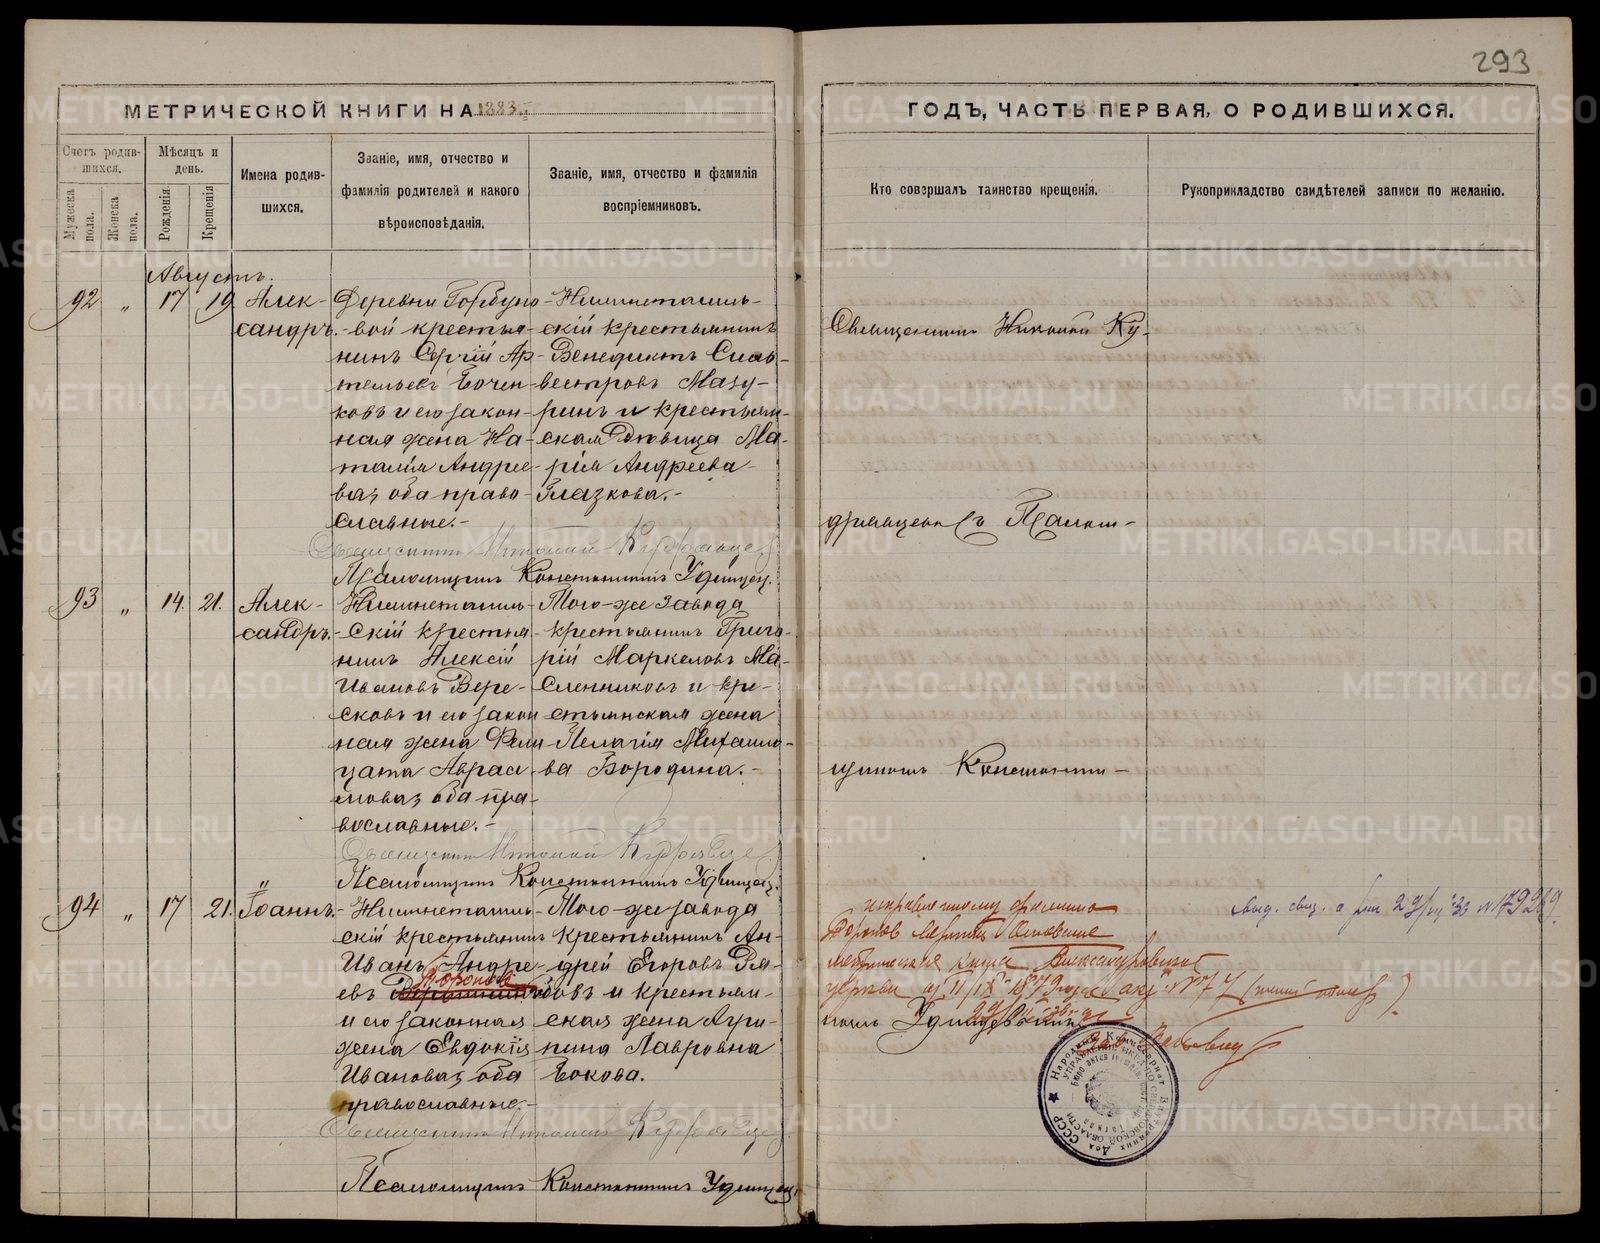 293
МЕТРИЧЕСКОЙ КНИГИ НА 1883
ГОДЪ, ЧАСТЬ ПЕРВАЯ, О РОДИВШИХСЯ.
Счетъ родив-
шихся.
Мужеска пола.
Женска пола.
Мѣсяцъ и
день.
Рожденія.
Крещенія
Имена родив-
шихся.
Званіе, имя, отчество и
фамилія родителей и какого
вѣроисповѣданія.
Званіе, имя, отчество и фамилія
воспріемниковъ.
Кто совершалъ таинство крещенія.
Рукоприкладство свидѣтелей записи по желанію.
Августъ.
92 " 17 19
Алек-
сандръ.
Деревни Горбуно-
вой крестья-
нинъ Сергій Ар-
темьевъ Бочен-
ковъ и его закон-
ная жена На-
талія Андрее-
ва, оба право-
славные.-
Нижнетагиль-
скій крестьянинъ
Венедиктъ Силь-
вестровъ Мазу-
ринъ и крестьян-
ская дѣвица Ма-
рія Андреева
Глазкова.-
Священникъ Николай Ку-
дрявцевъ съ Псалом-
Священникъ Николай Кудрявцев
Псаломщикъ Константинъ Удинцев.
93 " 14. 21.
Алек-
сандръ.-
Нижнетагиль-
скій крестья-
нинъ Алексій
Ивановъ Вере-
сковъ и его закон
ная жена Фели-
цата Авраа-
мова, оба пра-
вославные.-
Того-же завода
крестьянинъ Григо-
рій Маркеловъ Ма-
сленниковъ и кре-
стьянская жена
Пелагія Михаило-
ва Бородина.-
щикомъ Константи-
Священникъ Николай Кудрявцев
Псаломщикъ Константинъ Удинцев.
94 " 17 21.
Іоаннъ.-
Нижнетагиль-
скій крестьянинъ
Иванъ Андре-
евъ
Воронов
и его законная
жена Евдокія
Иванова, оба
православные.-
Того-же завода
Крестьянинъ Ан-
дрей Егоровъ Ря-
бовъ и крестьян-
ская жена Агри-
пина Лавровна
Бокова.
номъ Удинцевымъ.
исправленному фамилию
Воронов
Основание
метрическая книга Александровской
церкви
Народный Комиссариат Внутренних Дел СССР
Священникъ Николай Кудрявцев
Псаломщикъ Константинъ Удинцев
METRIKI.GASO-URAL.RU